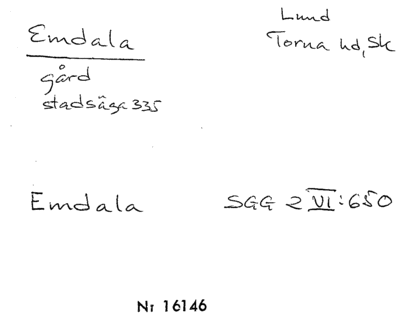 Emdala
Lund
Torna hd, Sk
gård
stadsäga 335
Emdala
SGG 2 VI:650
Nr 16146